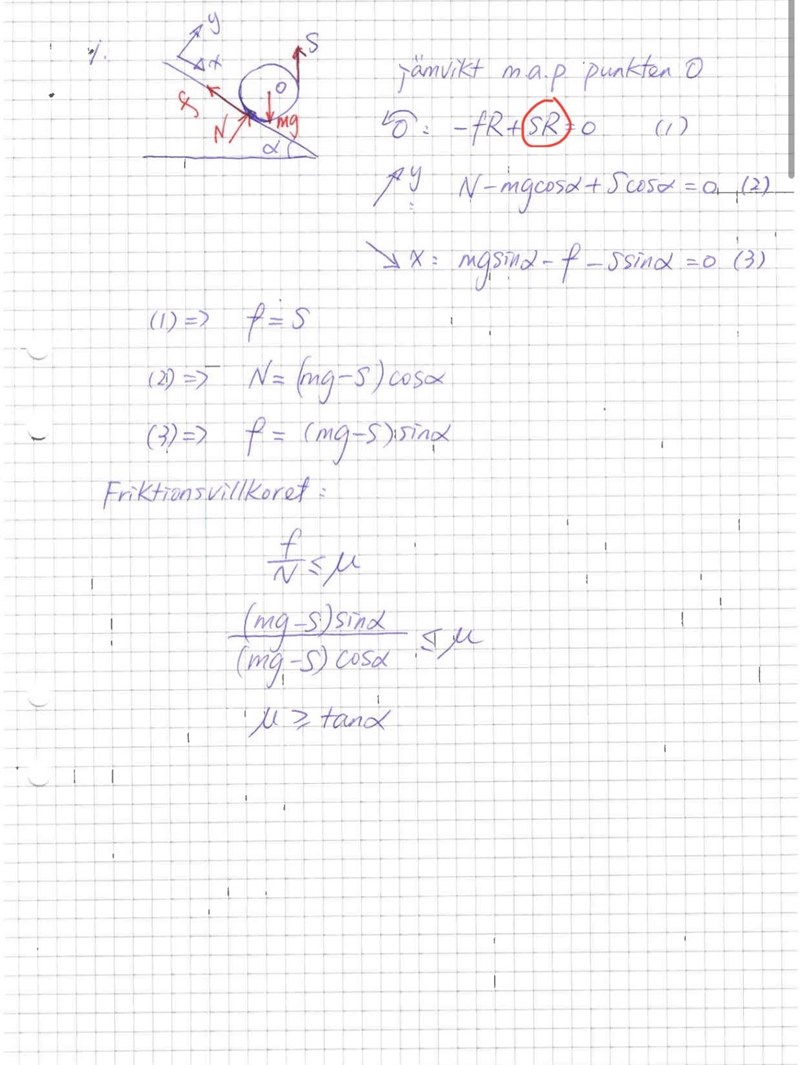 1.
y
x
S
f
O
N
mg
α
jämvikt m.a.p punkten O
O: -fR+SR=0 (1)
↗y: N-mgcosα+Scosα=0 (2)
↘x: mgsinα-f-Ssinα=0 (3)
(1)=> f=S
(2)=> N=(mg-S)cosα
(3)=> f=(mg-S)sinα
Friktionsvillkoret:
f/N ≤ μ
(mg-S)sinα/(mg-S)cosα ≤ μ
μ ≥ tanα